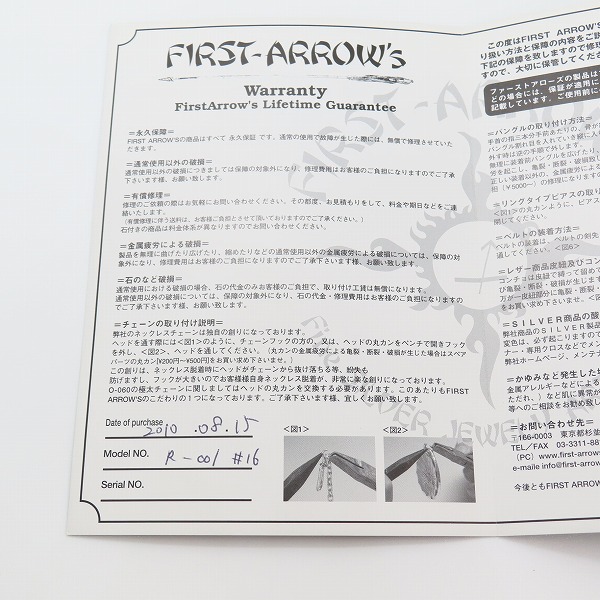 FIRST-ARROW's
Warranty
FirstArrow's Lifetime Guarantee
＝永久保障＝
FIRST ARROW'Sの商品はすべて 永久保証 です。通常の使用で故障が生じた際には、無償で修理させていた
だきます。
＝通常使用以外の破損＝
通常使用以外の破損につきましては保障の対象外になり、修理費用はお客様のご負担になりますのでご了承
下さいます様、お願い致します。
＝有償修理＝
修理のご依頼の際はお気軽にお問い合わせください、その都度、お見積もりをして、料金や期日などをご連
絡いたします。
（有償修理に伴う送料は、お客様ご負担とさせて頂いておりますのでご了承ください。）
石付きの商品は料金体系が異なりますのでお問い合わせください。
＝金属疲労による破損＝
製品を無理に曲げたり広げたり、縮めたりなどの通常使用以外の金属疲労による破損については、保障の対
象外になり、修理費用はお客様のご負担になりますのでご了承下さいます様、お願い致します。
＝石のなど破損＝
通常使用における破損の場合、石の代金のみお客様のご負担で、取り付け工賃は無償になります。
通常使用以外の破損については、保障の対象外になり、石の代金・修理費用はお客様のご負担になりますの
でご了承下さいます様、お願い致します。
＝チェーンの取り付け説明＝
弊社のネックレスチェーンは独自の創りになっております。
ヘッドを通す際には<図1>のように、チェーンフックの方の、又は、ヘッドの丸カンをペンチで開きフック
を外し、<図2>、ヘッドを通してください。（丸カンの金属疲労による亀裂・断裂・破損が生じた場合はスペア
パーツの丸カン[¥200円ー¥500円]をお買い求め下さいませ。）
この創りは、ネックレス脱着時にヘッドがチェーンから抜け落ちる等、紛失も
防げますし、フックが大きいのでお客様自身ネックレス脱着が、非常に楽な創りになっております。
O-060の極太チェーンに関しましてはヘッドの丸カンを交換する必要があります。このあたりもFIRST
ARROW'Sのこだわりの１つになっております。ご了承下さいます様、宜しくお願い致します。
Date of purchase 2010 .08.15
Model NO. R-001 #16
Serial NO.
<図1>
<図2>
この度はFIRST ARROW'S
り扱い方法と保障の内容をご説
下記の保障を致しますので修理
すので、大切に保管してくださ
ファーストアローズの製品は
どの場合には、保証が適用に
記載しています。ご使用前に
＝バングルの取り付け方法＝
＝リングタイプピアスの取り
＝ベルトの装着方法＝
＝レザー商品皮紐及びコン
＝ＳＩＬＶＥＲ商品の酸
弊社商品のSILVER製品
＝かゆみなど発生した場
金属アレルギーなどによる
＝お問い合わせ先＝
〒166-0003 東京都杉並
TEL／FAX 03-3311-88
(PC) www.first-arrows
e-maile info@first-arrow
今後ともFIRST ARROW